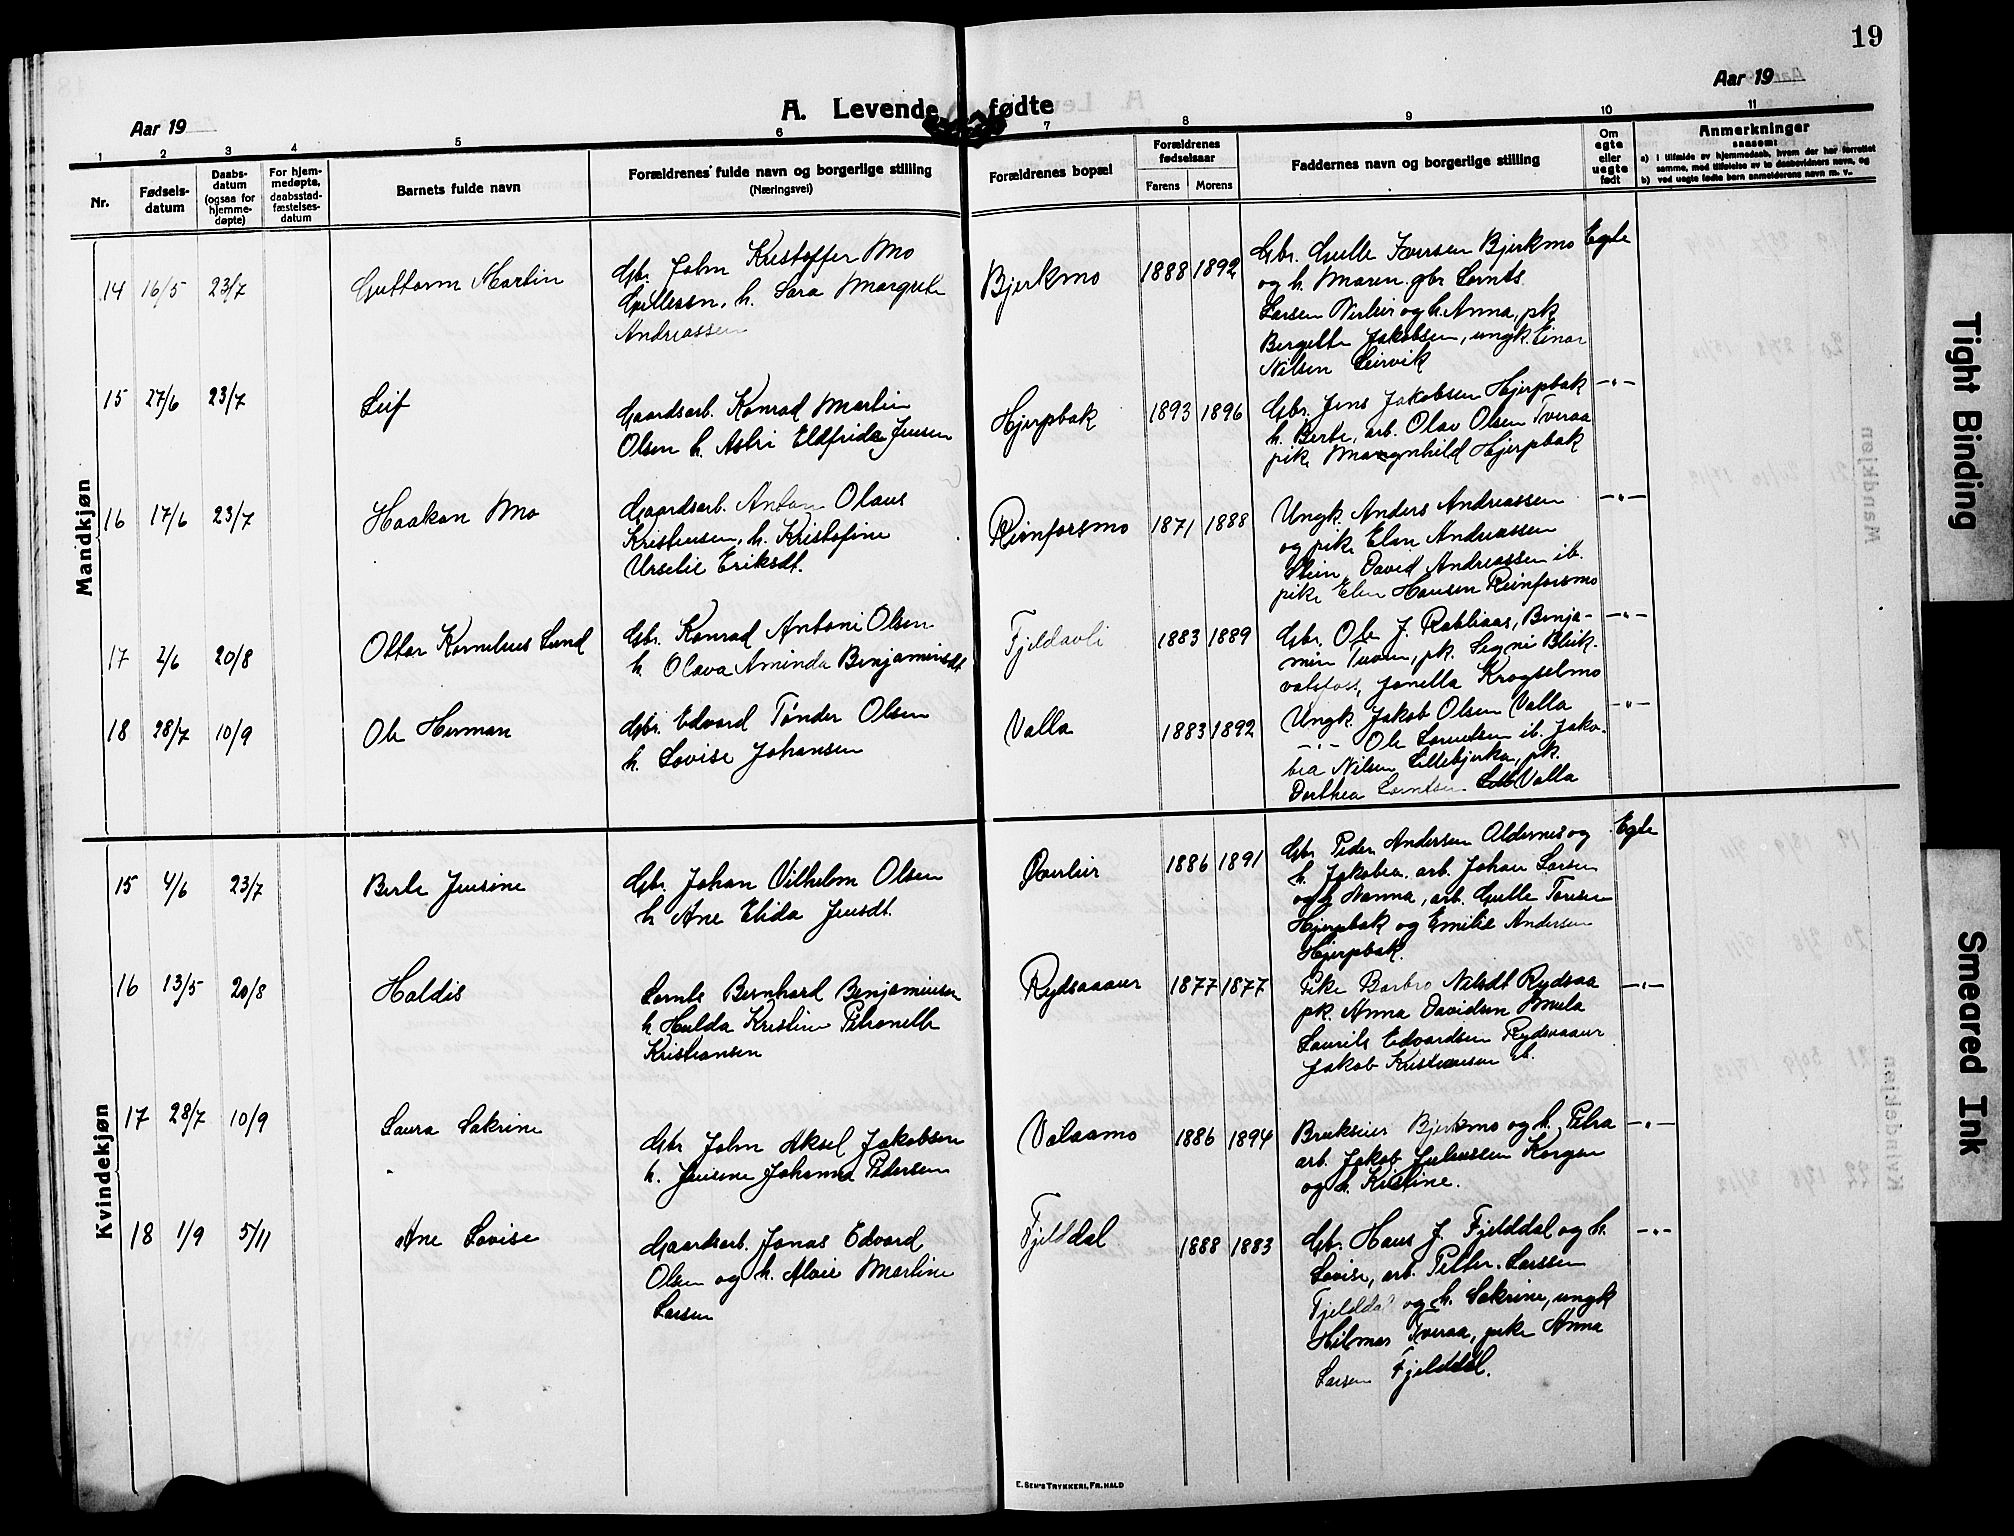 19
Aar 19
A. Levende fødte
Aar 19
1 2 3 4 5 6 7 8 9 10 11
Nr.
Fødsels-
datum
Daabs-
datum
(ogsaa for
hjemme-
døpte)
For hjem-
medøpte,
daabsstad-
fæstelses-
datum
Barnets fulde navn
Forældrenes fulde navn og borgerlige stilling
(Næringsvei)
Forældrenes bopæl
Forældrenes
fødselsaar
Farens Morens
Faddernes navn og borgerlige stilling
Om
egte
eller
uegte
født
Anmerkninger
saasom:
a) i tilfælde av hjemmedaab, hvem der har forrettet
samme, med tilføielse av to daabsvidners navn, og
b) ved uegte fødte barn anmelderens navn m. v.
Mandkjøn
14 16/5 23/7 Guttorm Martin
Gbr. John Kristoffer Mo
Gullesen, h. Sara Margrete
Andreassen
Bjerkmo 1888 1892
Gbr. Gulle Bjerkmo
og h. Maren gbr Lornts
Larsen og h. Anna, pk
Bergette Jakobsen, ungk. Einar
Nilsen Leirvik
Egte
15 27/6 23/7 Leif
Gaardsarb. Konrad Martin
Olsen h. Astri Eldfrida Jensen
Hjerpbak 1893 1896
Gbr. Jens Jakobsen Hjerpbak
h. Berte, arb. Olav Olsen Tveraa
pike Mangnhild Hjerpbak
—"—
16 17/6 23/7 Haakon Mo
Gaardsarb. Anton Olaus
Kristensen, h. Kristofine
Urselie Eriksdt.
Reinforsmo 1871 1888
Ungk. Anders Andreassen
og pike Elen Andreassen
Stien, David Andreassen ib.
pike Elen Hansen Reinforsmo
—"—
17 2/6 20/8 Ottar Kornelius Lund
Gbr. Konrad Antoni Olsen
h. Olava Aminda Benjaminsdt
Fjeldavli 1883 1889
Gbr. Ole J. Rabliaas, Benja-
min Tuven, pk. Signi Bleik-
valsfoss, Jonella Krogselmo
—"—
18 28/7 10/9 Ole Herman
Gbr. Edvard Tønder Olsen
h. Lovise Johansen
Valla 1883 1892
Ungk. Jakob Olsen Valla
—"— Ole Lorentsen ib. Jako-
bea Nilsen Lillebjerka, pk.
Dorthea Lorntsen Valla
—"—
Kvindekjøn
15 4/6 23/7 Berle Jensine
Gbr. Johan Vilhelm Olsen
h. Ane Elida Jensdt.
Øverleir 1886 1891
Gbr Peder Andersen Aldernes og
h. Jakobea. arb. Johan Larsen
og h Nanna, arb. Gulle Toresen
Hjerpbak og Emilie Andersen
Hjerpbak.
Egte
16 13/5 20/8 Haldis
Lornts Bernhard Benjaminsen
h Hulda Kristine Petronelle
Kristiansen
Rydsaaaur 1877 1877
Pike Barbro Nilsdt Rydsaa
pk. Anna Davidsen Smula
Laurits Edvardsen Rydsaaaur
Jakob Kristiansen ib.
—"—
17 28/7 10/9 Laura Sakrine
Gbr John Aksel Jakobsen
h. Jensine Johanna Pedersen
Valaamo 1886 1894
Brukseier Bjerkmo og h. Petra
arb. Jakob Juliussen Korgen
og h. Kristine.
—"—
18 1/9 5/11 Ane Lovise
Gaardsarb. Jonas Edvard
Olsen og h. Alvie Martine
Larsen
Fjelddal 1888 1883
Gbr. Hans J. Fjelddal og h.
Lovise, arb. Petter Larssen
Fjelddal og h. Sakrine, ungk
Hilmar Tveraa, pike Anna
Larsen Fjelddal.
—"—
E. SEM'S TRYKKERI, FR.HALD
Tight Binding
Smeared Ink